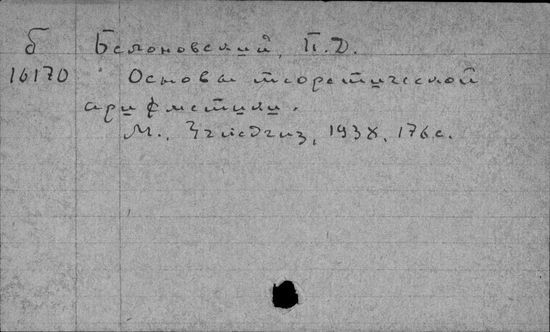 б Белоновский, П.Д.
16170 Основы теоретической
арифметики.
М., Учпедгиз, 1938, 176 с.